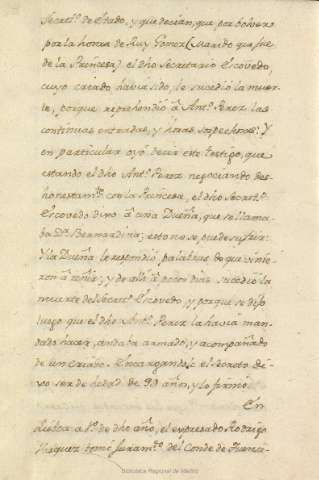 Secretº. de Estado, y que decian, que por bolver
por la honra de Ruy Gomez (Marido que fue
de la Princesa) el dho Secretario Escovedo,
cuyo criado havia sido, le sucedió la muer-
te, porque reprehendió â Antº. Perez las
continuas entradas, y otras sospechosas: Y
en particular oyó decir este testigo, que
estando el dho Antº. Perez negociando des-
honestamte. con la Princesa, el dho Secretº.
Escovedo dixo â una Dueña, que se llama-
ba Dª. Bernardina; esto no se puede sufrir:
Y la Dueña le respondió palabras de que vinie-
ron â reñir; y de alli â pocos dias sucedió la
muerte del Secretº. Escovedo, y porque se dijo
luego que el dho Antº. Perez la havia man-
dado hacer, andaba armado, y acompañado
de un criado. Encargandosele el secreto di-
xo ser de hedad de 29 años, y lo firmó.
En
â 1º. de dho año, el expresado Rodrigo
Vazquez tomó juramtº. del Conde de Fuensa-
Biblioteca Regional de Madrid